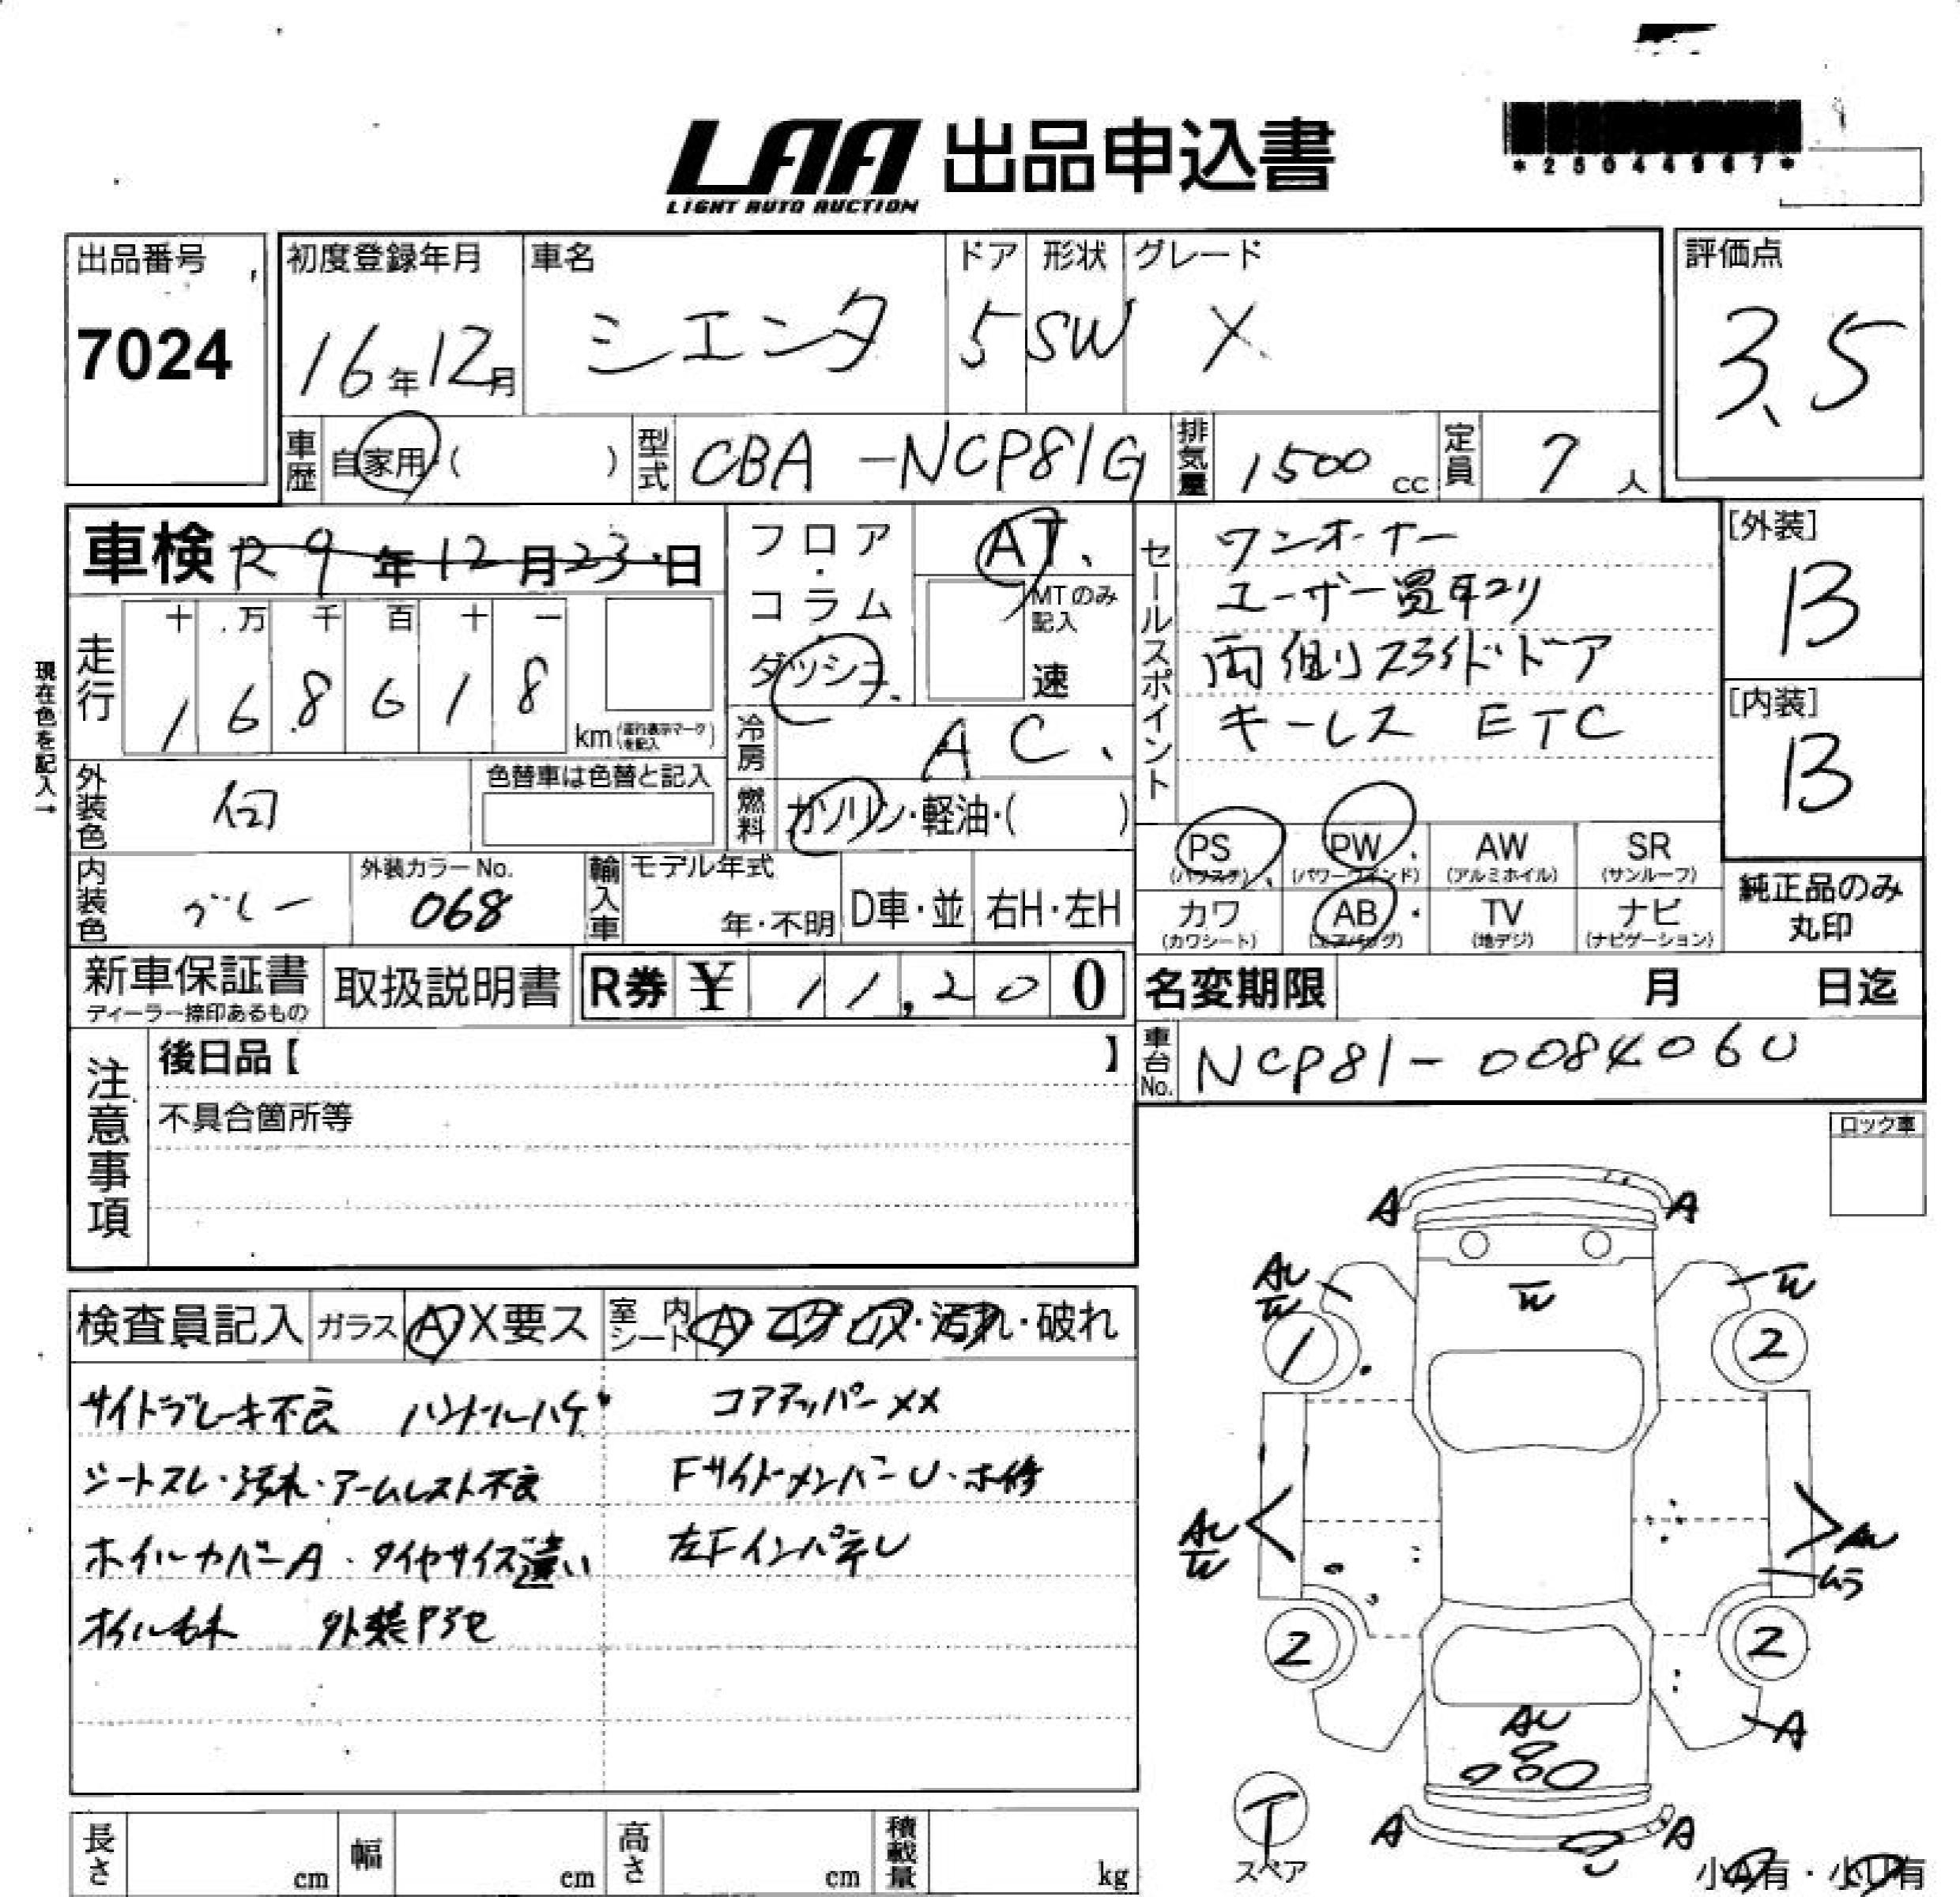 LAA 出品申込書
LIGHT AUTO AUCTION
*25044967*
出品番号
7024
初度登録年月
16年12月
車名
シエンタ
ドア
5
形状
SW
グレード
X
評価点
3.5
車歴
自家用・( )
型式
CBA-NCP81G
排気量
1500 cc
定員
7人
車検 R9年12月23日
フロア・コラム・ダッシュ
AT
MTのみ記入
速
セールスポイント
ワンオーナー
ユーザー買取り
両側スライドドア
キーレス ETC
[外装]
B
[内装]
B
現在色を記入→
走行
十 万 千 百 十 一
1 6 8 6 1 8
km (走行表示マークを記入)
冷房
AC
外装色
白
色替車は色替と記入
燃料
ガソリン・軽油・( )
PS
(パワステ)
PW
(パワーウインド)
AW
(アルミホイル)
SR
(サンルーフ)
内装色
グレー
外装カラーNo.
068
輸入車
モデル年式
年・不明
D車・並
右H・左H
カワ
(カワシート)
AB
(エアバッグ)
TV
(地デジ)
ナビ
(ナビゲーション)
純正品のみ
丸印
新車保証書
ディーラー捺印あるもの
取扱説明書
R券 ¥ 11,200
名変期限 月 日迄
車台No.
NCP81-0084060
注意事項
後日品【 】
不具合箇所等
ロック車
検査員記入
ガラス
A X要ス
室内シート
A コゲ 穴・汚れ・破れ
サイドブレーキ不良 ハンドルハゲ
コアアッパーXX
シートスレ・汚れ・アームレスト不良
Fサイドメンバーu・ホ修
ホイルカバーA・タイヤサイズ違い
左Fインパネu
オイルモレ 外装アラセ
A A
AU
W
W
W
1 2
AU
W
AU
ムラ
2 2
AU
A
T
スペア
A A
小A有・小U有
長さ cm
幅 cm
高さ cm
積載量 kg